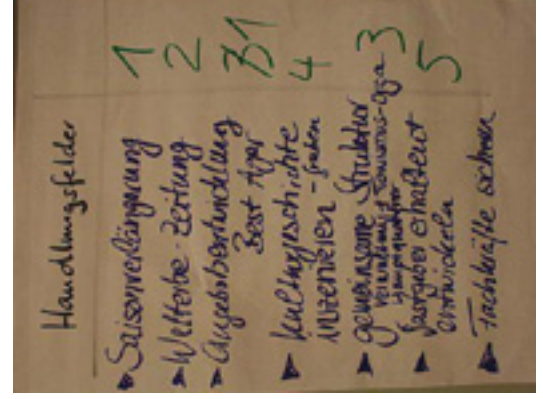 Handlungsfelder
Saisonverlängerung 1
Welterbe-Zeitung 2
Angebotsentwicklung 1
Best Ager
Kulturgeschichte 4
inszenieren -
gemeinsame Struktur 3
Tourismus-
erhalten
entwickeln 5
Fachkräfte sichern